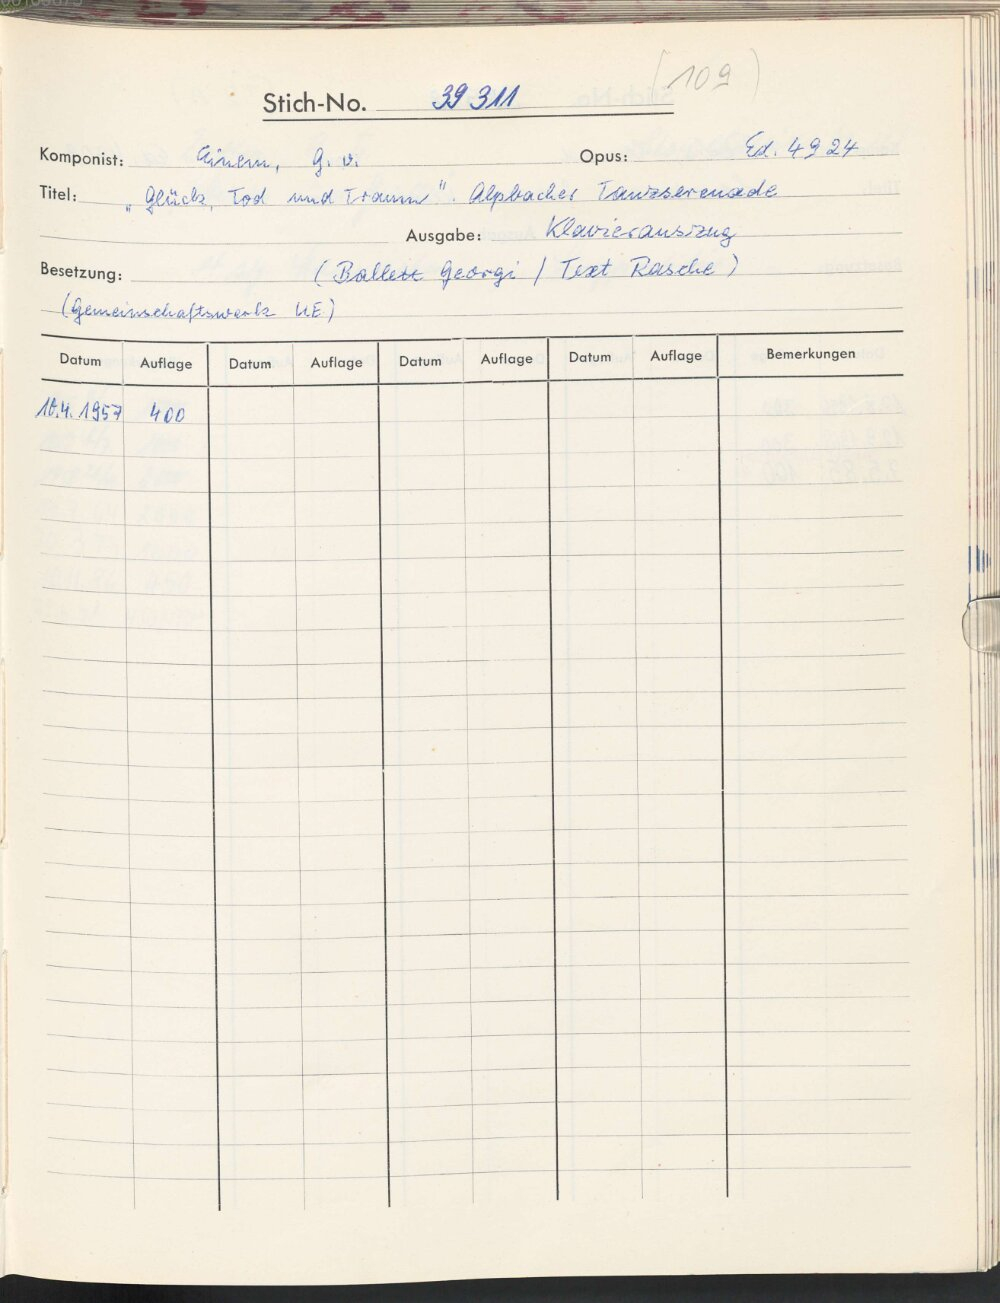 (109)
Stich-No. 39 311
Komponist: Einem, G. v. Opus: Ed. 4924
Titel: „Glück, Tod und Traum". Alpbacher Tanzserenade
Ausgabe: Klavierauszug
Besetzung: (Ballett Georgi / Text Rasche)
(Gemeinschaftswerk UE)
Datum Auflage Datum Auflage Datum Auflage Datum Auflage Bemerkungen
.4.1957 400